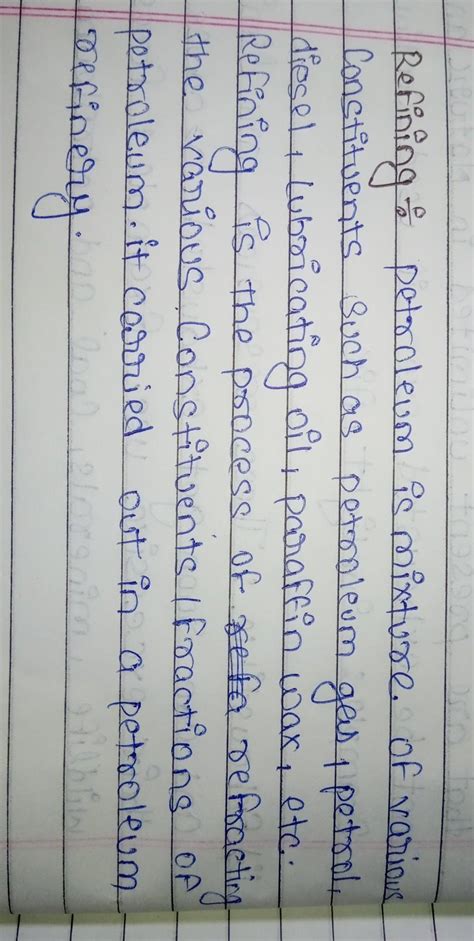 Refining :- petroleum is mixture. of various
Constituents such as petroleum gas, petrol,
diesel, Lubricating oil, paraffin wax, etc.
Refining is the process of refracting
the various Constituents / fractions of
petroleum. it carried out in a petroleum
refinery.